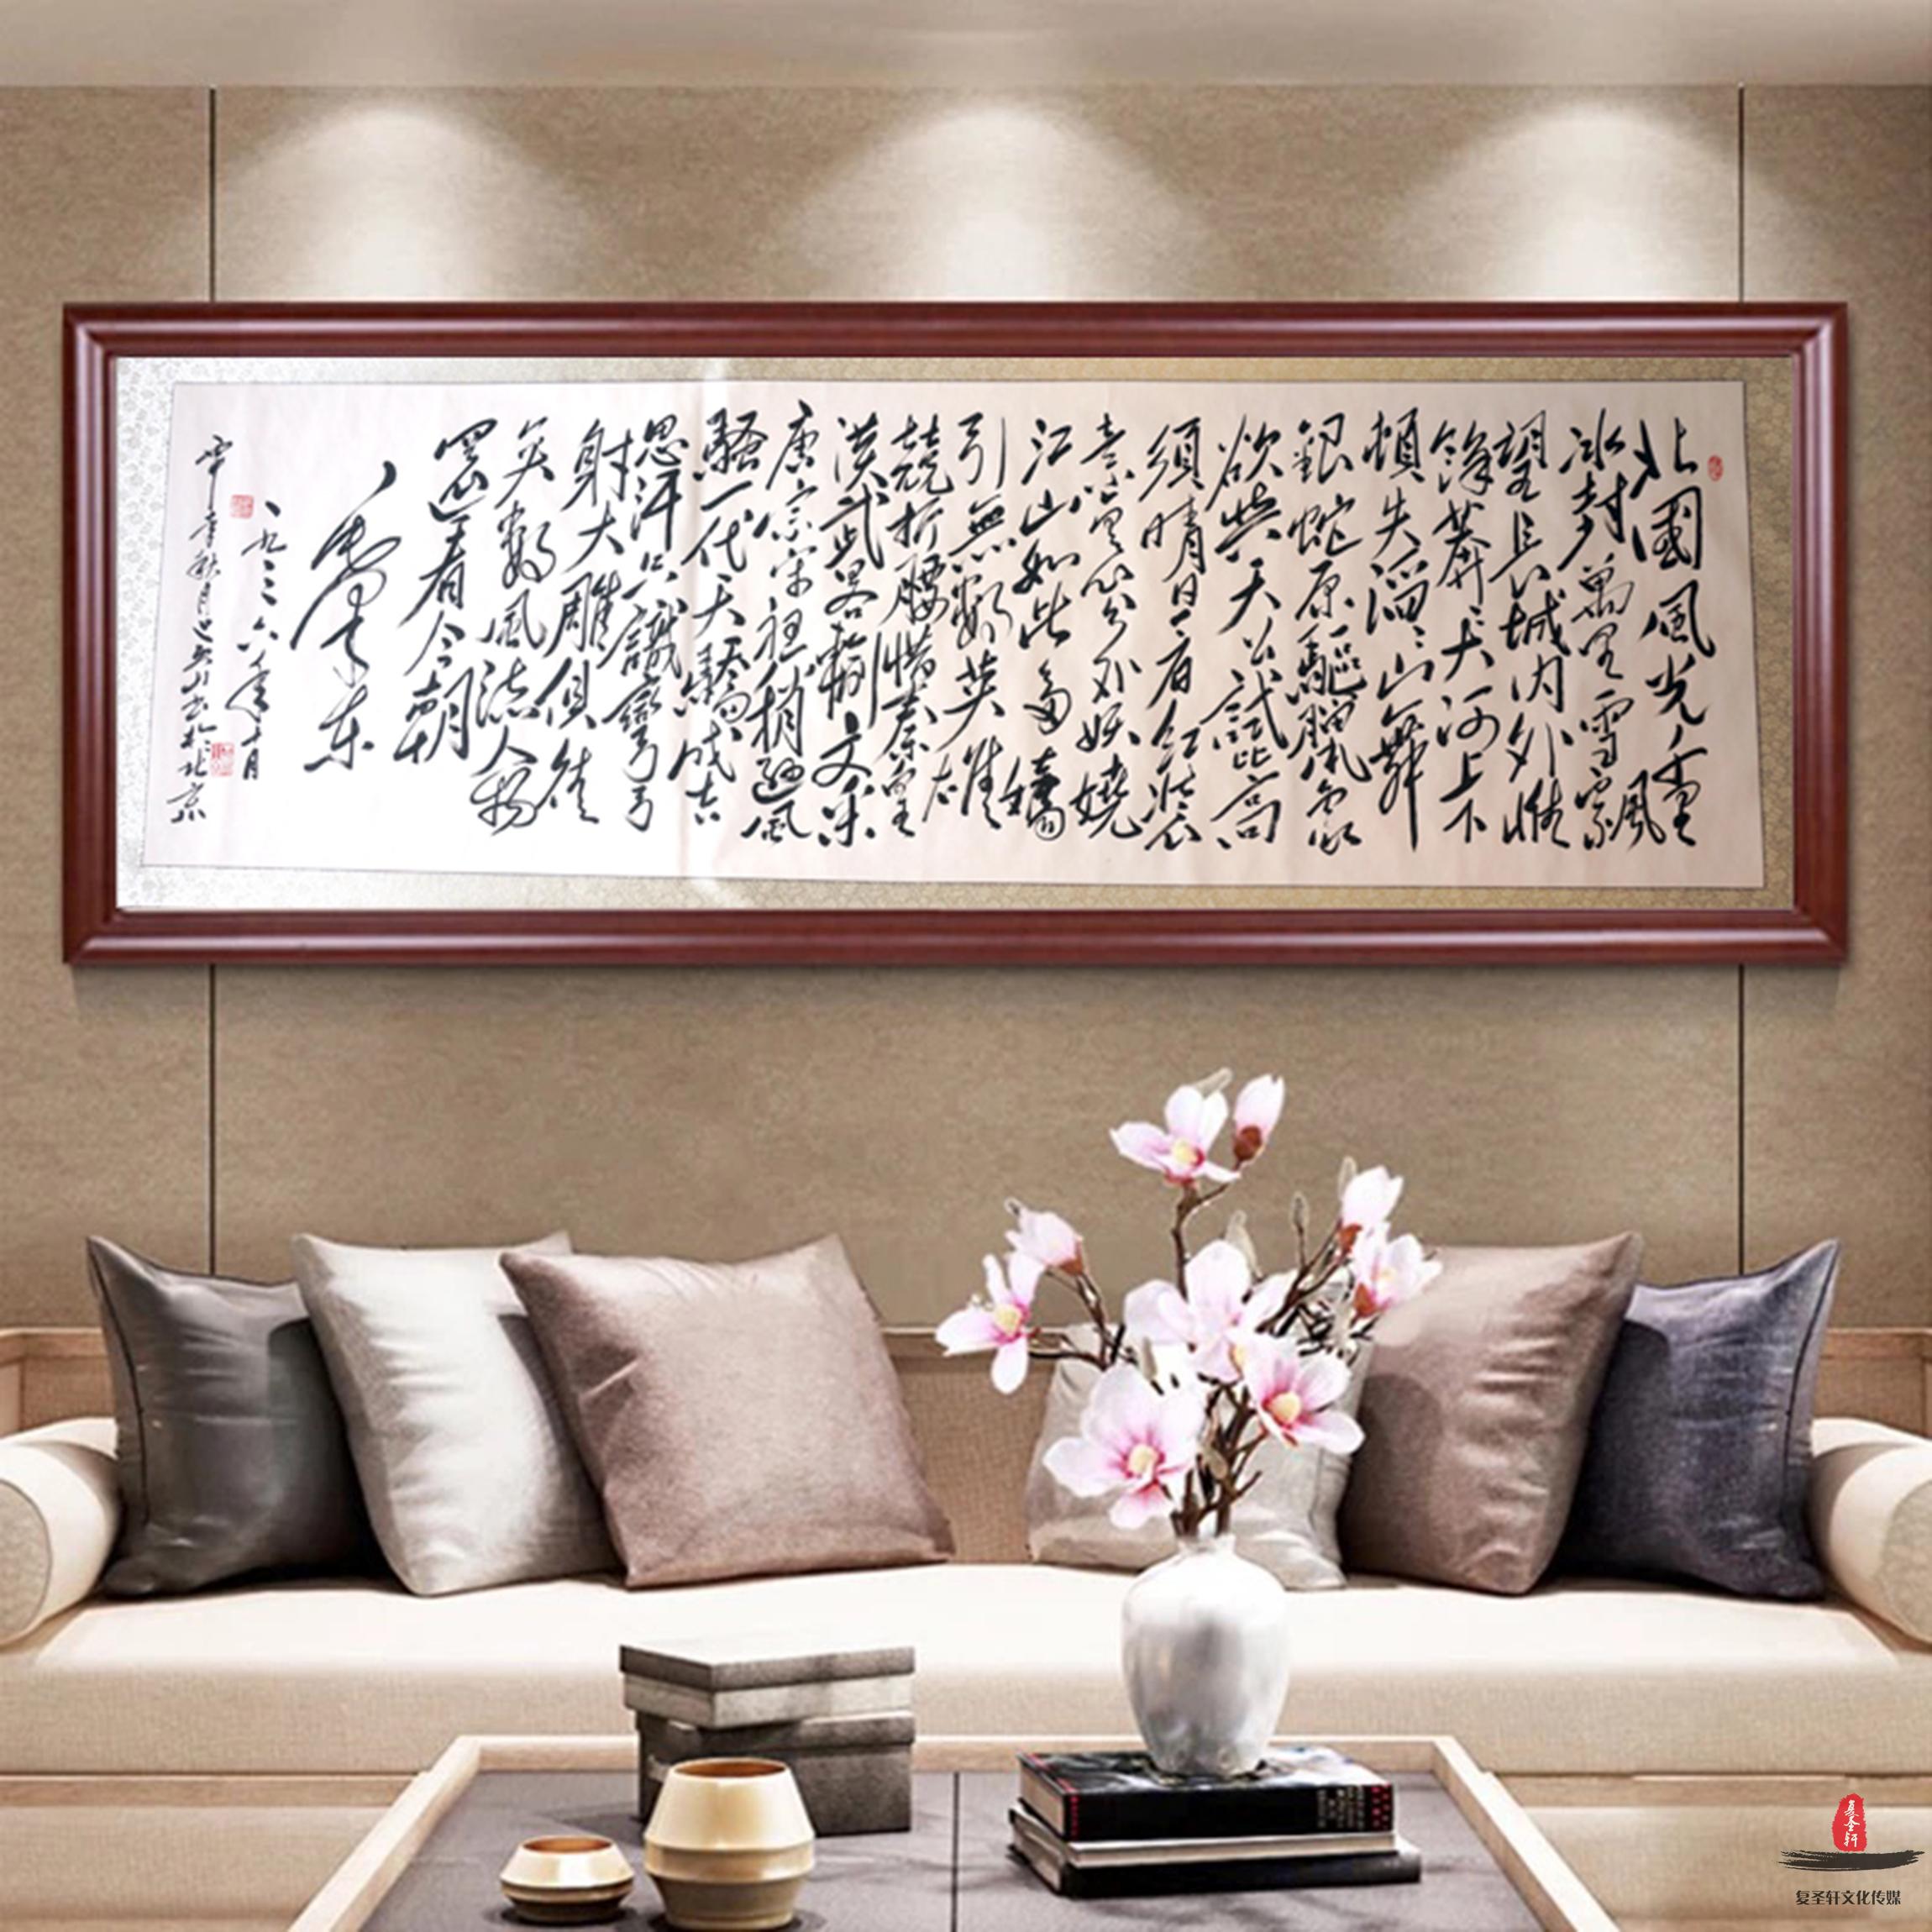 北國風光千里
冰封萬里雪飄
望長城内外惟
餘莽莽大河上下
頓失滔滔山舞
銀蛇原驅臘象
欲與天公試比高
須晴日看紅裝
素裹分外妖嬈
江山如此多嬌
引無數英雄
競折腰惜秦皇
漢武略輸文采
唐宗宋祖稍遜風
騷一代天驕成吉
思汗只識彎弓
射大雕俱往
矣數風流人物
還看今朝
毛澤東
一九三六年十月
秋月 书於北京
复圣轩
复圣轩文化传媒